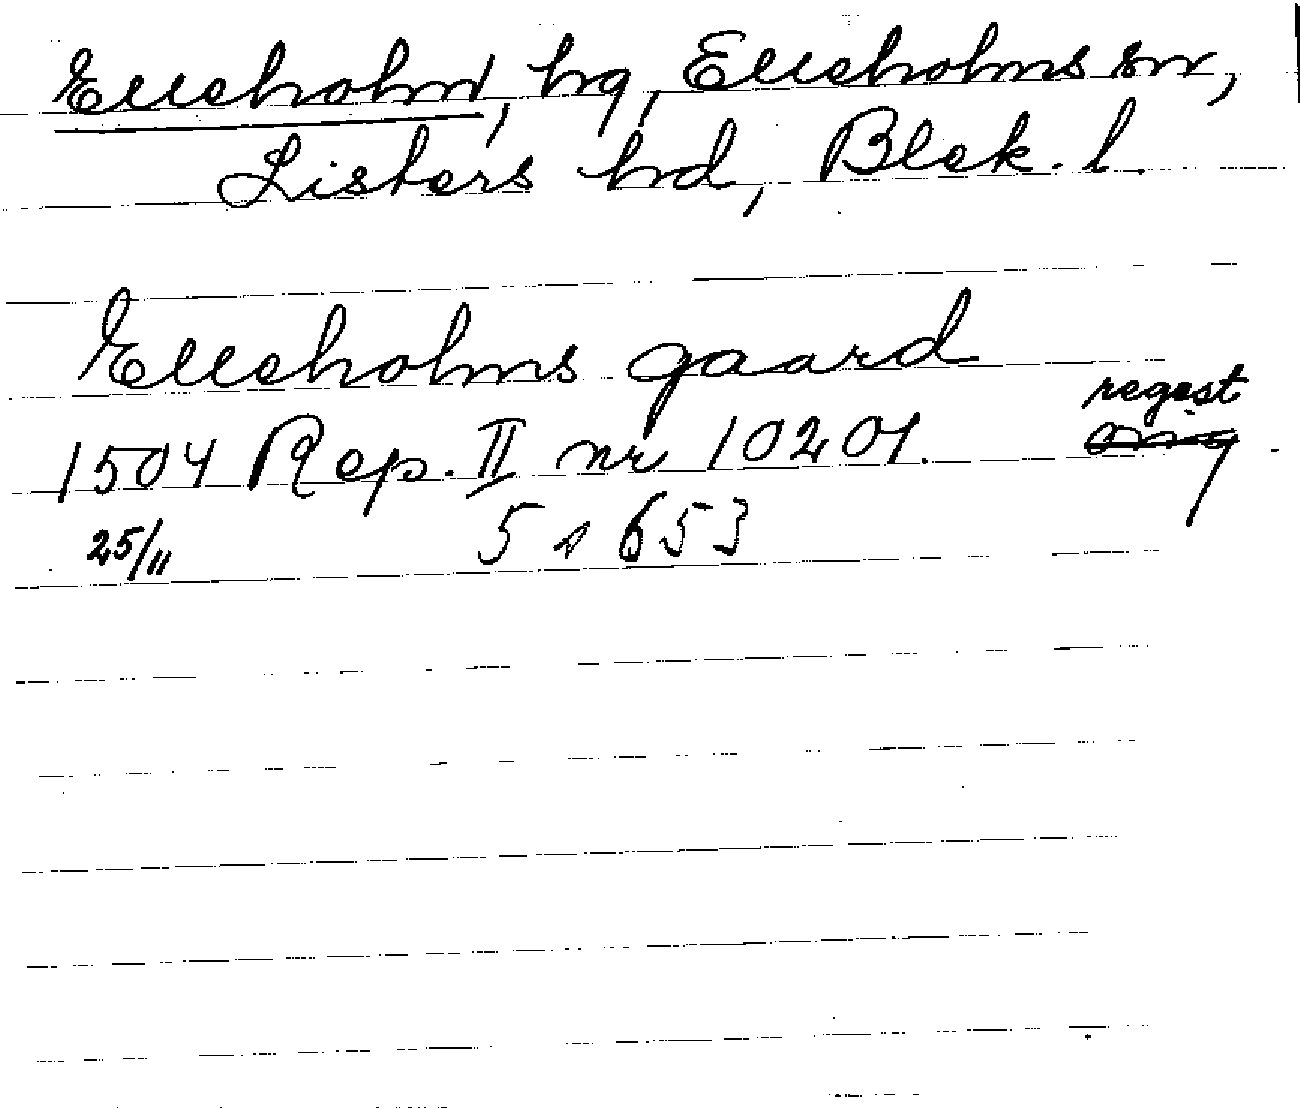 Elleholm, hg, Elleholms sn,
Listers hd, Blek. l.
Elleholms gaard
regest
1504 Rep. II nr 10201. orig
25/11 5 s 653